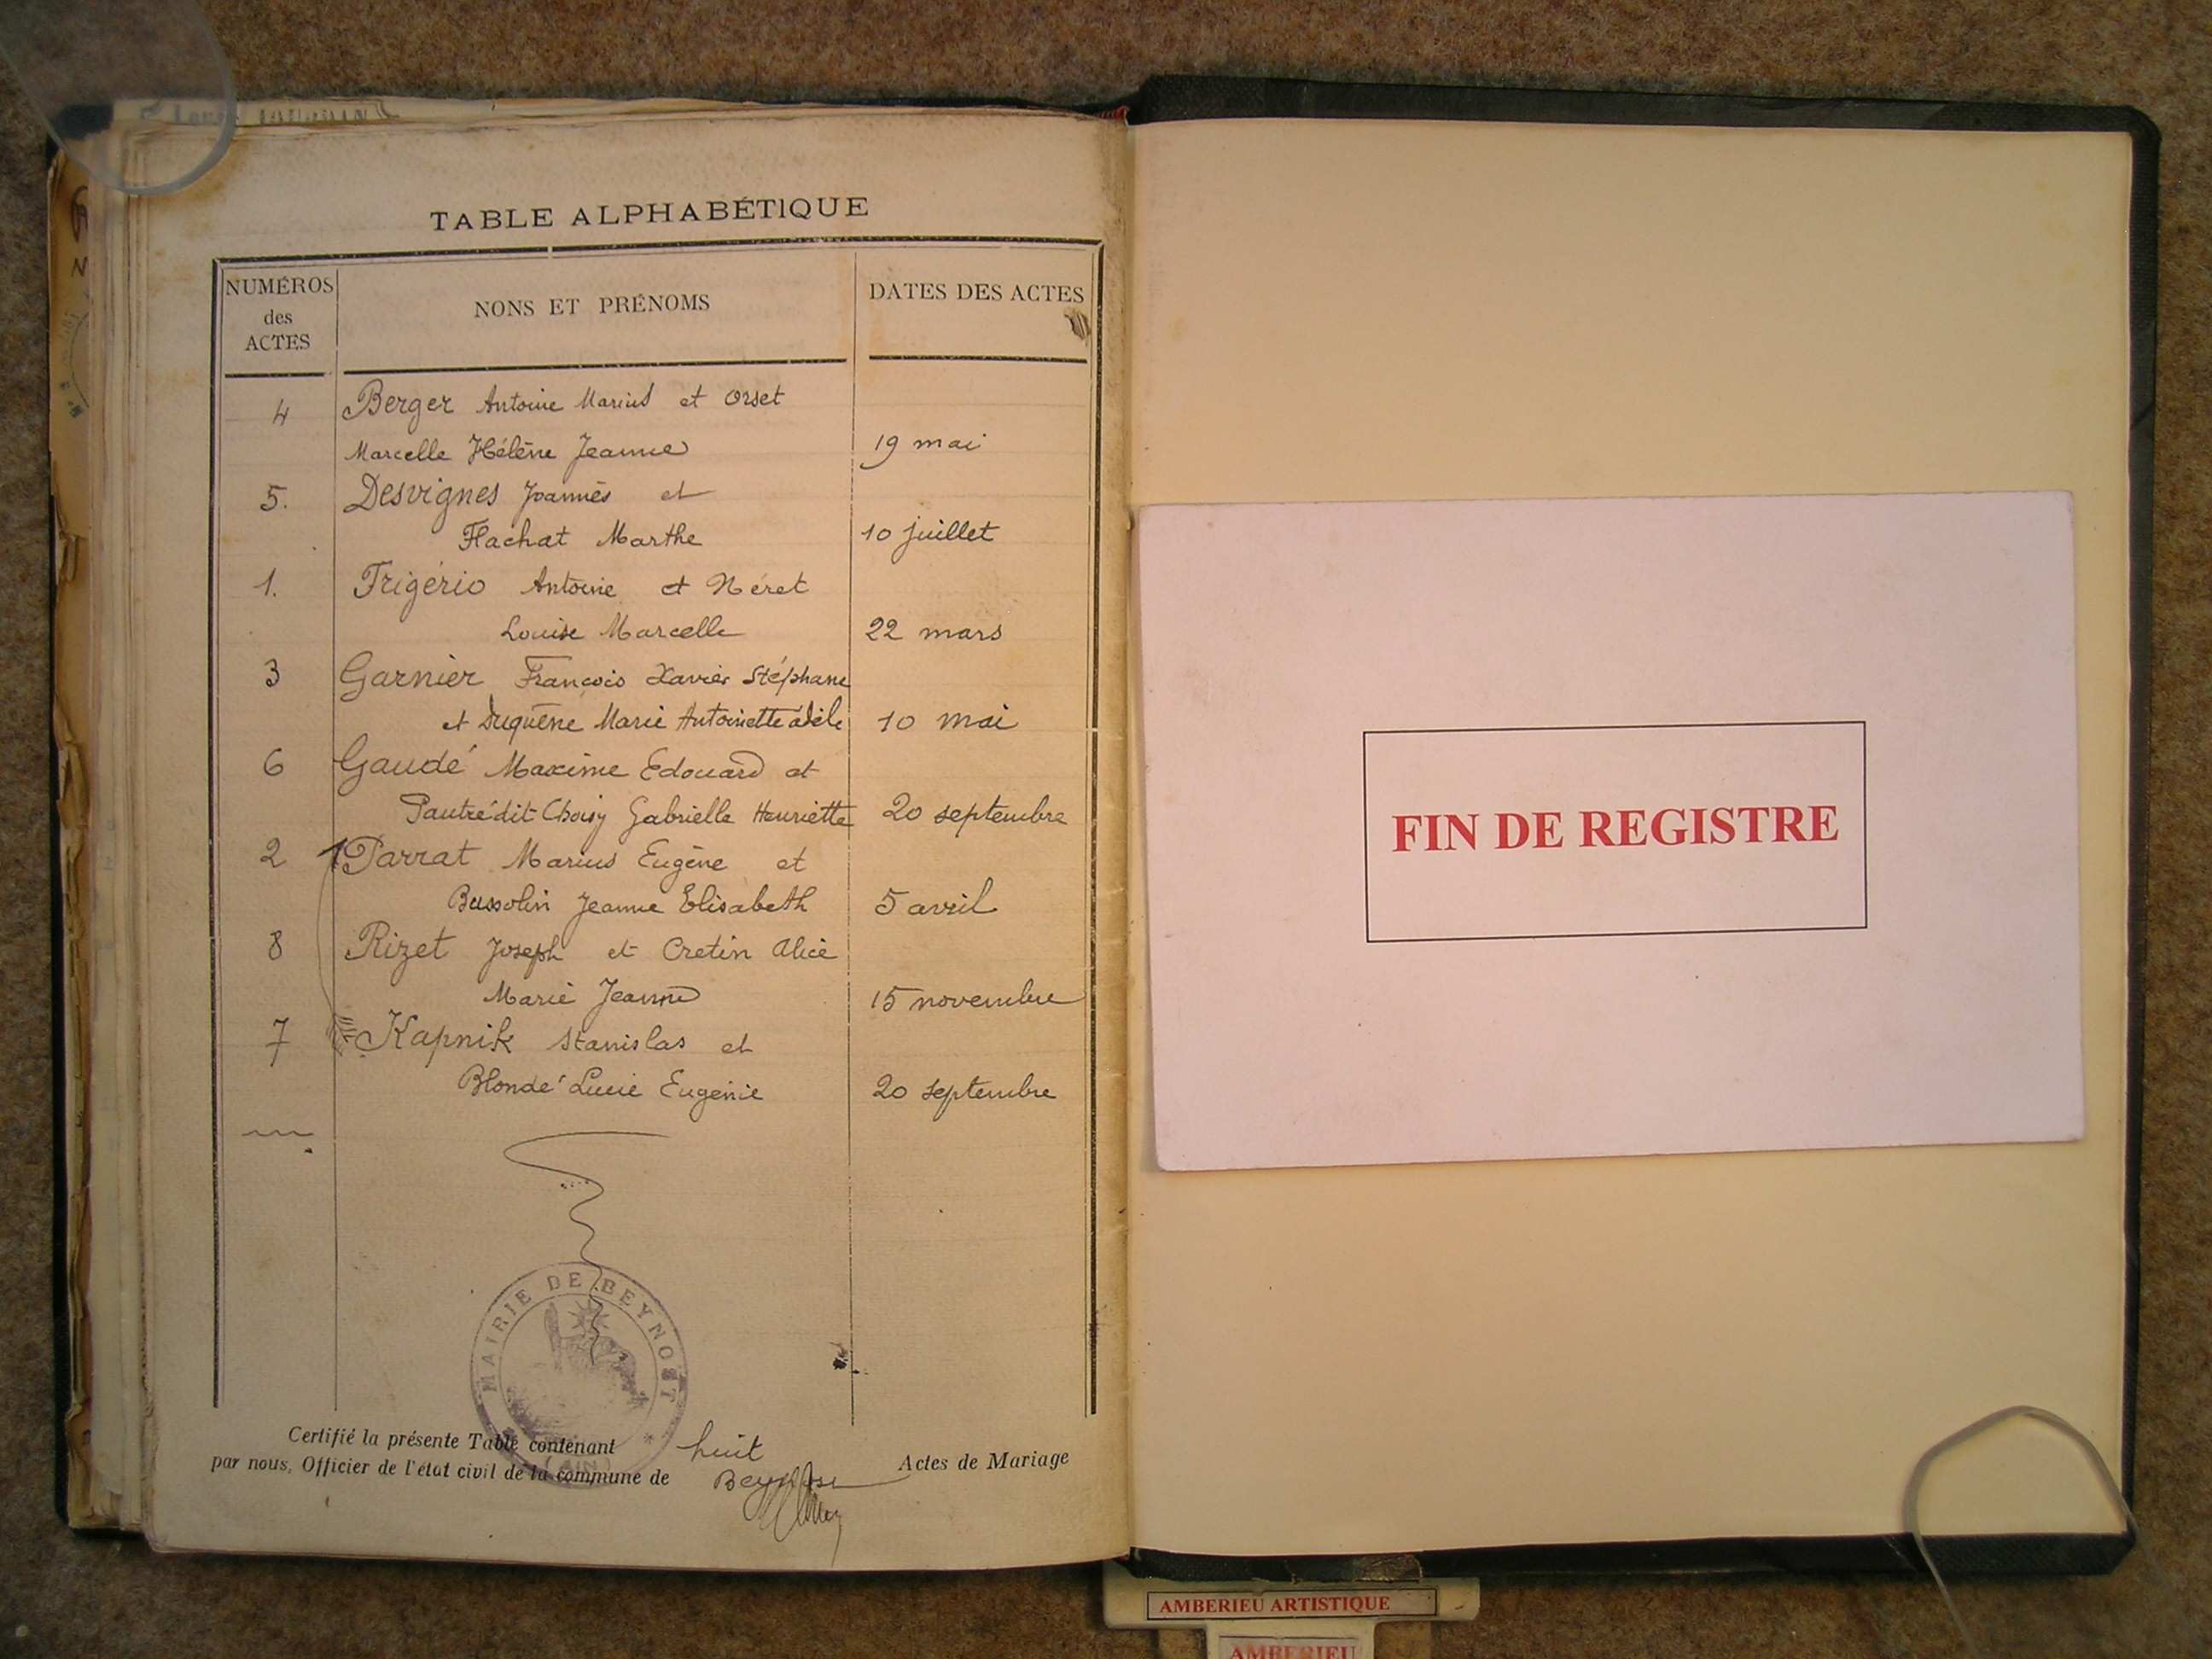 TABLE ALPHABÉTIQUE
NUMÉROS
des
ACTES
NONS ET PRÉNOMS
DATES DES ACTES
4 Berger Antoine Marius et Orset
Marcelle Hélène Jeanne 19 mai
5. Desvignes Joannès et
Flachat Marthe 10 juillet
1. Frigério Antoine et Néret
Louise Marcelle 22 mars
3 Garnier François Xavier Stéphane
et Duquêne Marie Antoinette adèle 10 mai
6 Gaudé Maxime Edouard et
Pautré dit Choisy Gabrielle Henriette 20 septembre
2 Parrat Marius Eugène et
Bussolin Jeanne Elisabeth 5 avril
8 Rizet Joseph et Cretin Alice
Marie Jeanne 15 novembre
7 Kapnik Stanislas et
Blondé Lucie Eugénie 20 septembre
MAIRIE DE BEYNOST
(AIN)
Certifié la présente Table contenant huit Actes de Mariage
par nous, Officier de l'état civil de la commune de Beynost
FIN DE REGISTRE
AMBERIEU ARTISTIQUE
AMBERIEU